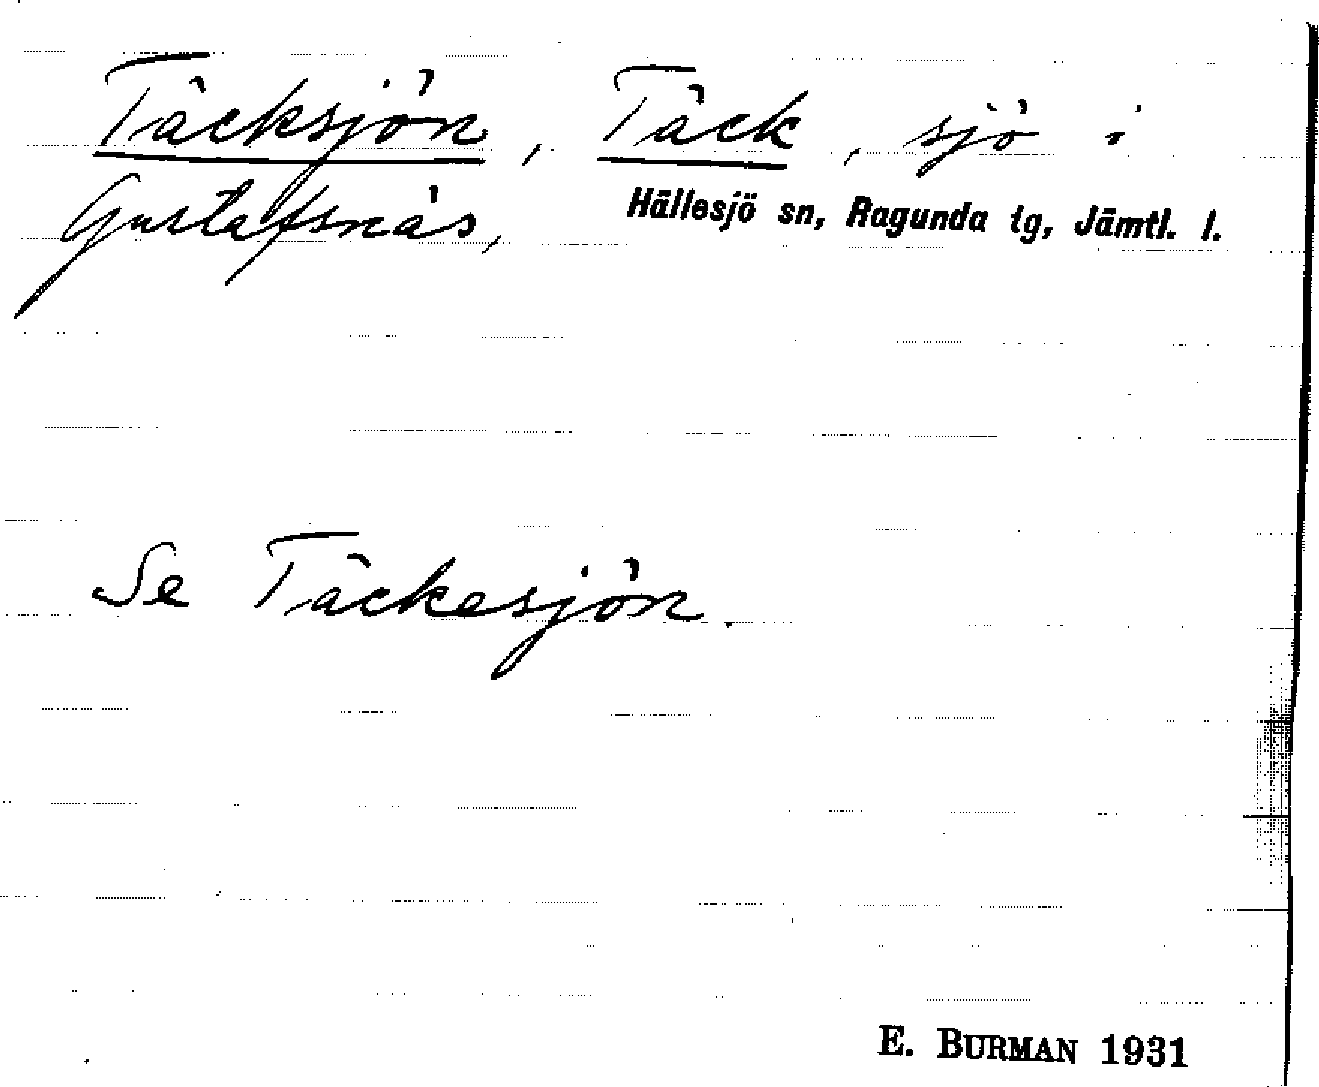 Täcksjön, Täck, sjö i
Gustafsnäs, Hällesjö sn, Ragunda tg, Jämtl. l.
Se Täckesjön.
E. BURMAN 1931